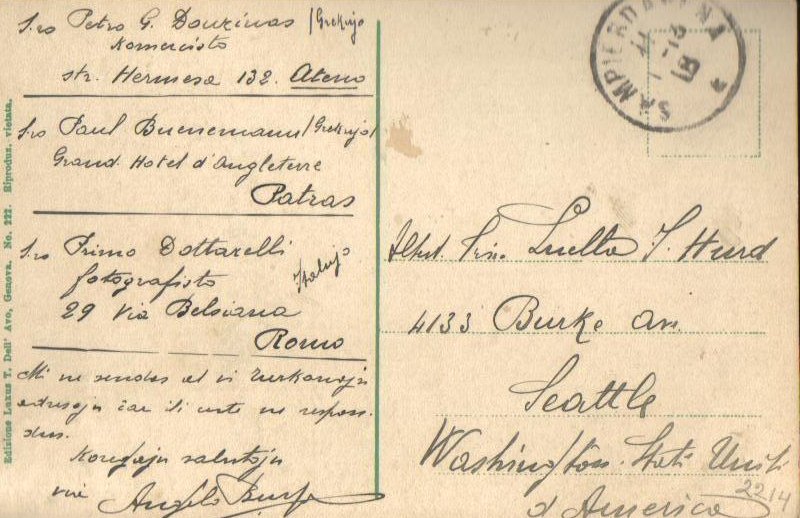 S.ro Petro G. Dourinas /Grekujo
Komercisto
str. Hermesa 132. Ateno
S.ro Paul Buenemann /Grekujo/
Grand Hotel d'Angleterre
Patras
S.ro Primo Dottarelli
fotografisto Italujo
29 Via Belsiana
Romo
Mi ne sendas al vi Turkanajn
adresojn ĉar ili certe ne respon-
dus.
Koregajn salutojn
via Angelo
Edizione Luxus T. Dell' Avo, Genova. No. 222. Riproduz. vietata.
SAMPIERDARENA
Luella J. Hurd
4133 Burke av.
Seattle
Washington. Stati Uniti
d'America
2214